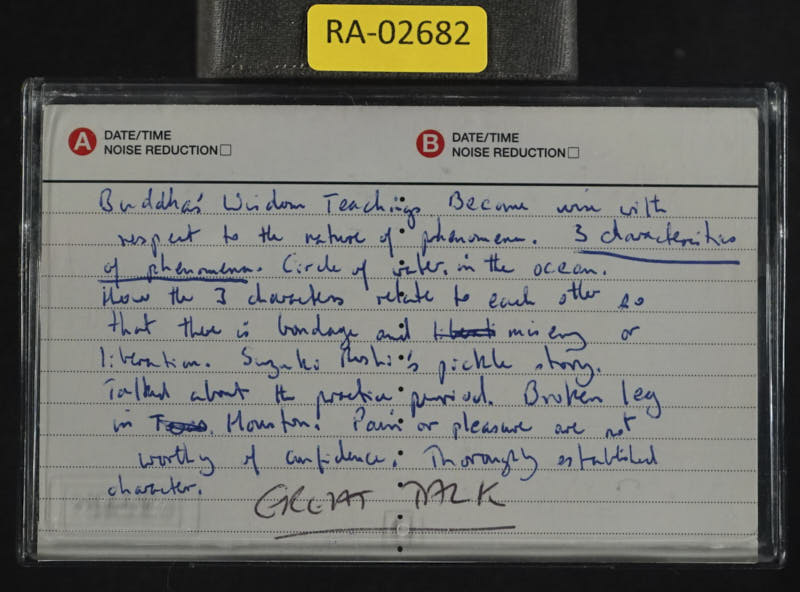 RA-02682
A DATE/TIME NOISE REDUCTION
B DATE/TIME NOISE REDUCTION
Buddha's Wisdom Teachings. Become wise with
respect to the nature of phenomena. 3 characteristics
of phenomena. Circle of water in the ocean.
How the 3 characters relate to each other so
that there is bondage and misery or
liberation. Suzuki Roshi's pickle story.
Talked about the practice period. Broken leg
in Houston. Pain or pleasure are not
worthy of confidence. Thoroughly established
character.
GREAT TALK